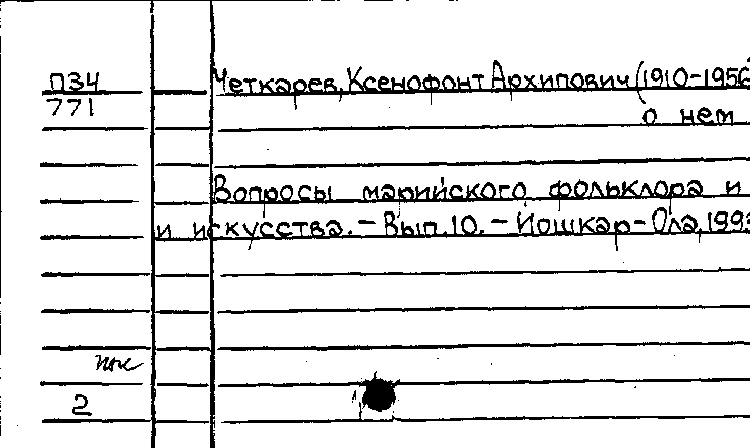 П34 Четкарев, Ксенофонт Архипович (1910-1956
771 о нем
Вопросы марийского фольклора и
и искусства. – Вып. 10. – Йошкар-Ола, 199
2